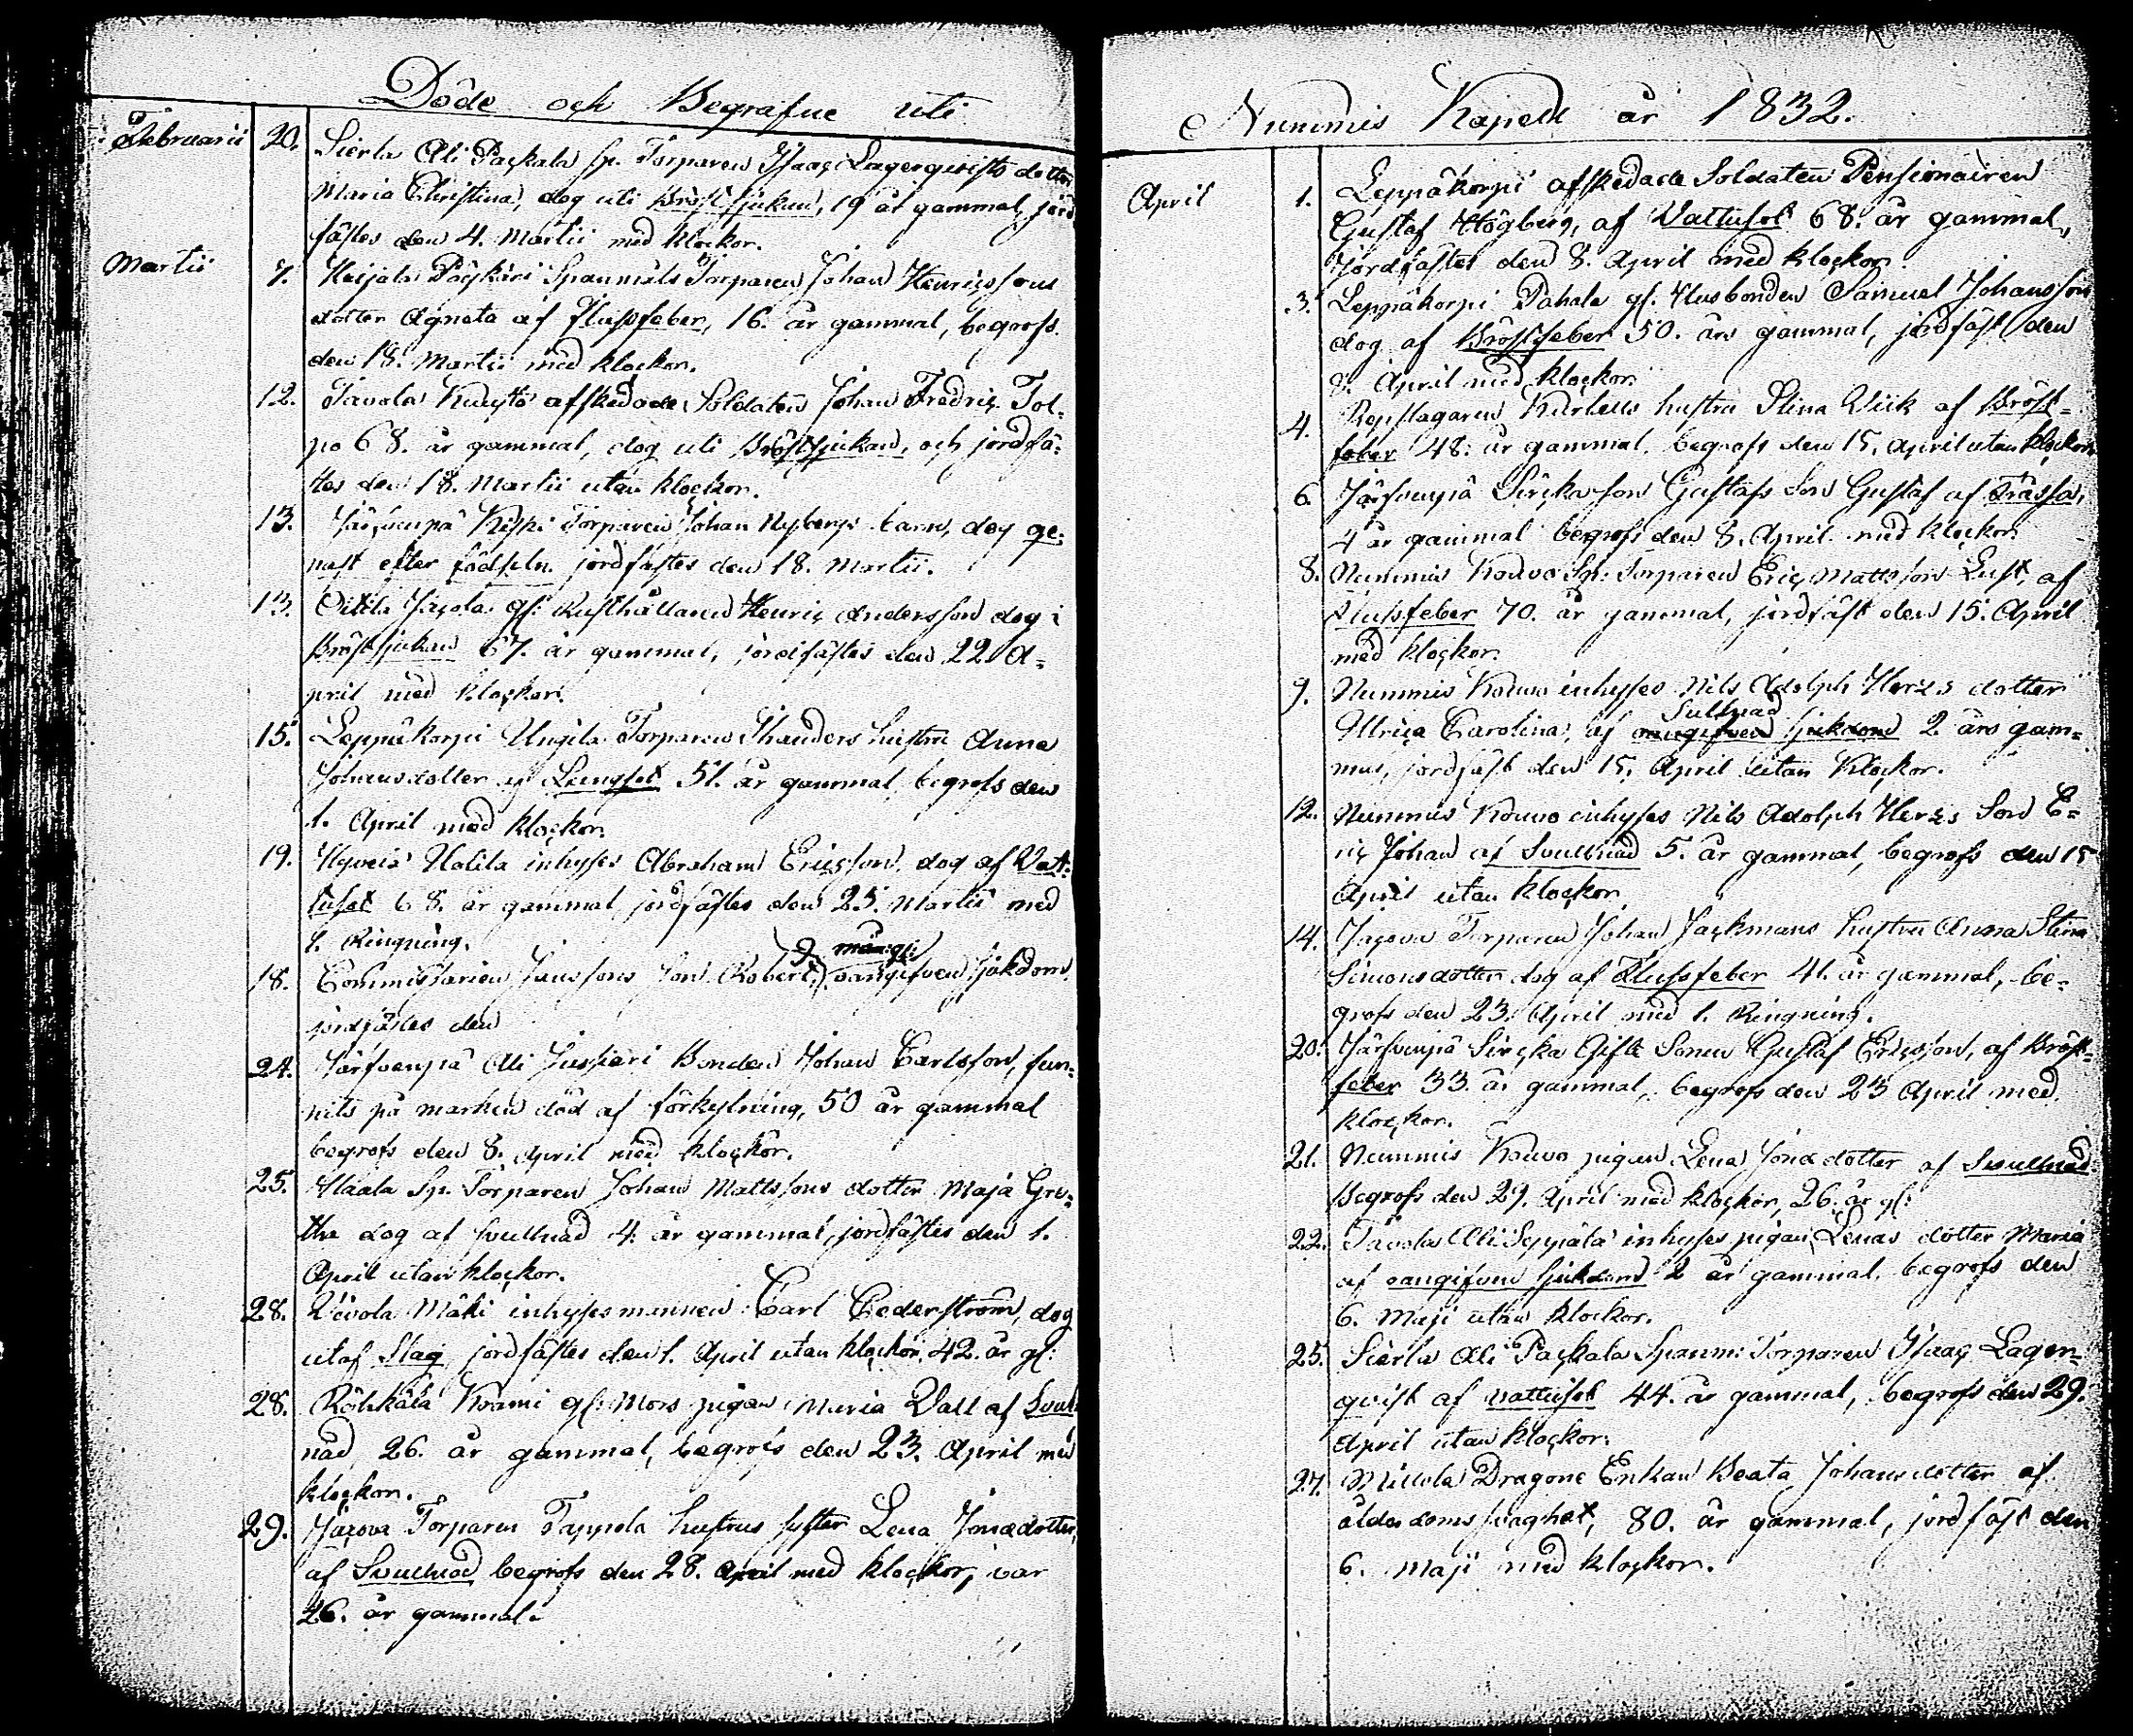 Döde och Begrafne uti
Februarii 20. Sierla Ali Paçkala sp. Torparen Isaaç Lagerqvists dotter
Maria Christina, dog uti Bröstsjukan, 19 år gammal, jord
fästes den 4. Martii med klockor.
Martii 7. Heijala Spanmåls Torparen Johan Henriçssons
dotter Agneta af Flussfeber, 16. år gammal, begrofs
den 18. Martii med kloçkor.
12. Tavola afskedade Soldaten Johan Fredriç Tol-
po 68. år gammal, dog uti Bröstsjukan, och jordfä-
stes den 18. Martii utan kloçkor.
13. Järfvenpä Torparen Johan Nybergs barn, dog ge-
nast efter födseln. jordfästes den 18. Martii.
13. Oittila Jaçola gf: Rusthållaren Henriç Andersson dog i
Bröstsjukan 67. år gammal, jordfästes den 22 A-
pril med kloçkor.
15. Leppäkorpi Ungila Torparen hustru Anna
Johansdotter af Lungsot 51. år gammal, begrofs den
1. April med kloçkor.
19. Halila inhyses Abraham Ericsson, dog af Vat-
tusot 68. år gammal jordfästes den 25. Martii med
1. Ringning.
18. Commissarien Janssons son Robert, 9 mån: gl: oangifven sjukdom.
jordfästes den
24. Järfvenpä Ali Jussari Bonden Johan Carlsson, fun-
nits på marken död af förkylning, 50 år gammal
begrofs den 8. April med kloçkor.
25. Haala Sp. Torparen Johan Mattssons dotter Maja Gre-
tha dog af svullnad 4. år gammal, jordfästes den 1.
April utan kloçkor.
28. Mäki inhysesmannen Carl Cederström, dog
utaf Slag jordfästes den 1. April utan kloçkor, 42. år gl:
28. Röhkälä gf: Mors pigan Maria Vall af Svul
nad, 26. år gammal, begrofs den 23. April med
kloçkor.
29. Jaçova Torparen Tappola hustrus syster Lena Jonædotter,
af Svullnad begrofs den 28. April med kloçkor, var
26. år gammal.
Nummis Kapell år 1832.
April 1. Leppäkorpi afskedade Soldaten Pensionairen
Gustaf Högberg, af Vattusot 68. år gammal,
jordfästes den 8. April med kloçkor.
3. Leppäkorpi Pahala gf. Husbonden Samuel Johansson
dog af Bröstfeber 50. års gammal, jordfäst den
8. April med kloçkor.
4. Repslagaren hustru Stina Wiik af Bröst-
feber 48. år gammal. begrofs den 15. April utan kloçkor
6 Järfvenpä Sirçka son Gustafs Son Gustaf af Trässa,
4 år gammal begrofs den 8. April med kloçkor.
8. Nummis Kouvo Sp: Torparen Eriç Mattsson Lust, af
Flussfeber 70. år gammal, jordfäst den 15. April
med kloçkor.
9. Nummis Kouvo inhyses Nils Adolph Herzs dotter
Ulriça Carolina, af oangifven sjukdom Sullnad 2 års gam-
mal, jordfäst den 15. April utan Kloçkor.
12. Nummis Kouvo inhyses Nils Adolph Herzs Son E-
riç Johan af Svullnad 5. år gammal, begrofs den 15
April utan kloçkor.
14. Jaçova Torparen Johan Jackmans hustru Anna Stina
Simonsdotter dog af Flussfeber 41. år gammal, be-
grofs den 23. April med 1. Ringning.
20. Järfvenpä Sirçka Gifte Sonen Gustaf Ericsson, af Bröst-
feber 33. år gammal, begrofs den 23 April med
kloçkor.
21. Nummis Kouvo pigan Lena Jonædotter af Svullnad
Begrofs den 29. April med kloçkor, 26. år gl:
22. Tavola Ali Seppälä inhyses pigan Lenas dotter Maria
af oangifven sjukdom 2 år gammal, begrofs den
6. Maji utan klockor.
25. Sierla Ali Paçkala Spanm: Torparen Isaaç Lager-
qvist af vattusot 44. år gammal, begrofs den 29.
April utan kloçkor.
27. Millola Dragone Enkan Beata Johansdotter af
ålderdomssvaghet, 80. år gammal, jordfäst den
6. Maji med kloçkor.